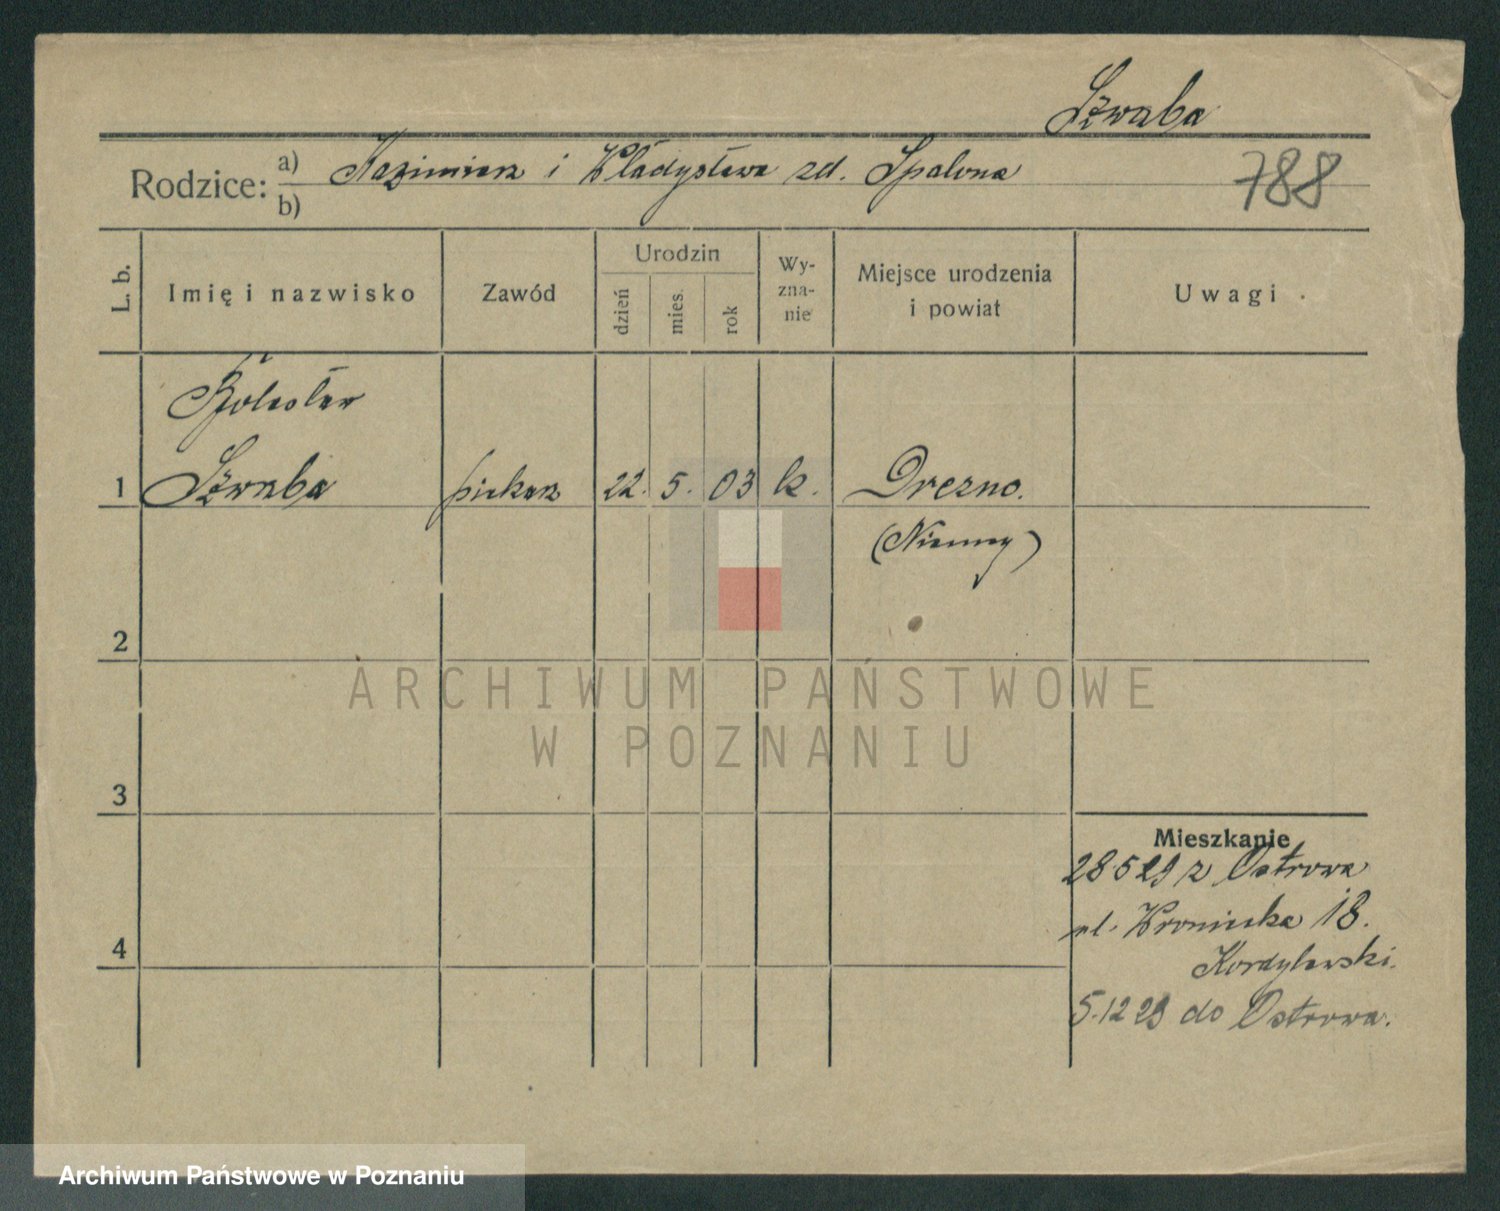 Szwaba
Rodzice: a) Kazimierz i Władysława zd. Spalona
b)
788
L. b.
Imię i nazwisko
Zawód
Urodzin
dzień
mies.
rok
Wy-
zna-
nie
Miejsce urodzenia
i powiat
Uwagi
Bolesław
1 Szwaba piekarz 22. 5. 03 k. Drezno.
(Niemcy)
2
ARCHIWUM PAŃSTWOWE
W POZNANIU
3
Mieszkanie
28 5 29 z Ostrowa
ul. Wroniecka 18.
Kordylewski.
4
5.12 29 do Ostrowa.
Archiwum Państwowe w Poznaniu